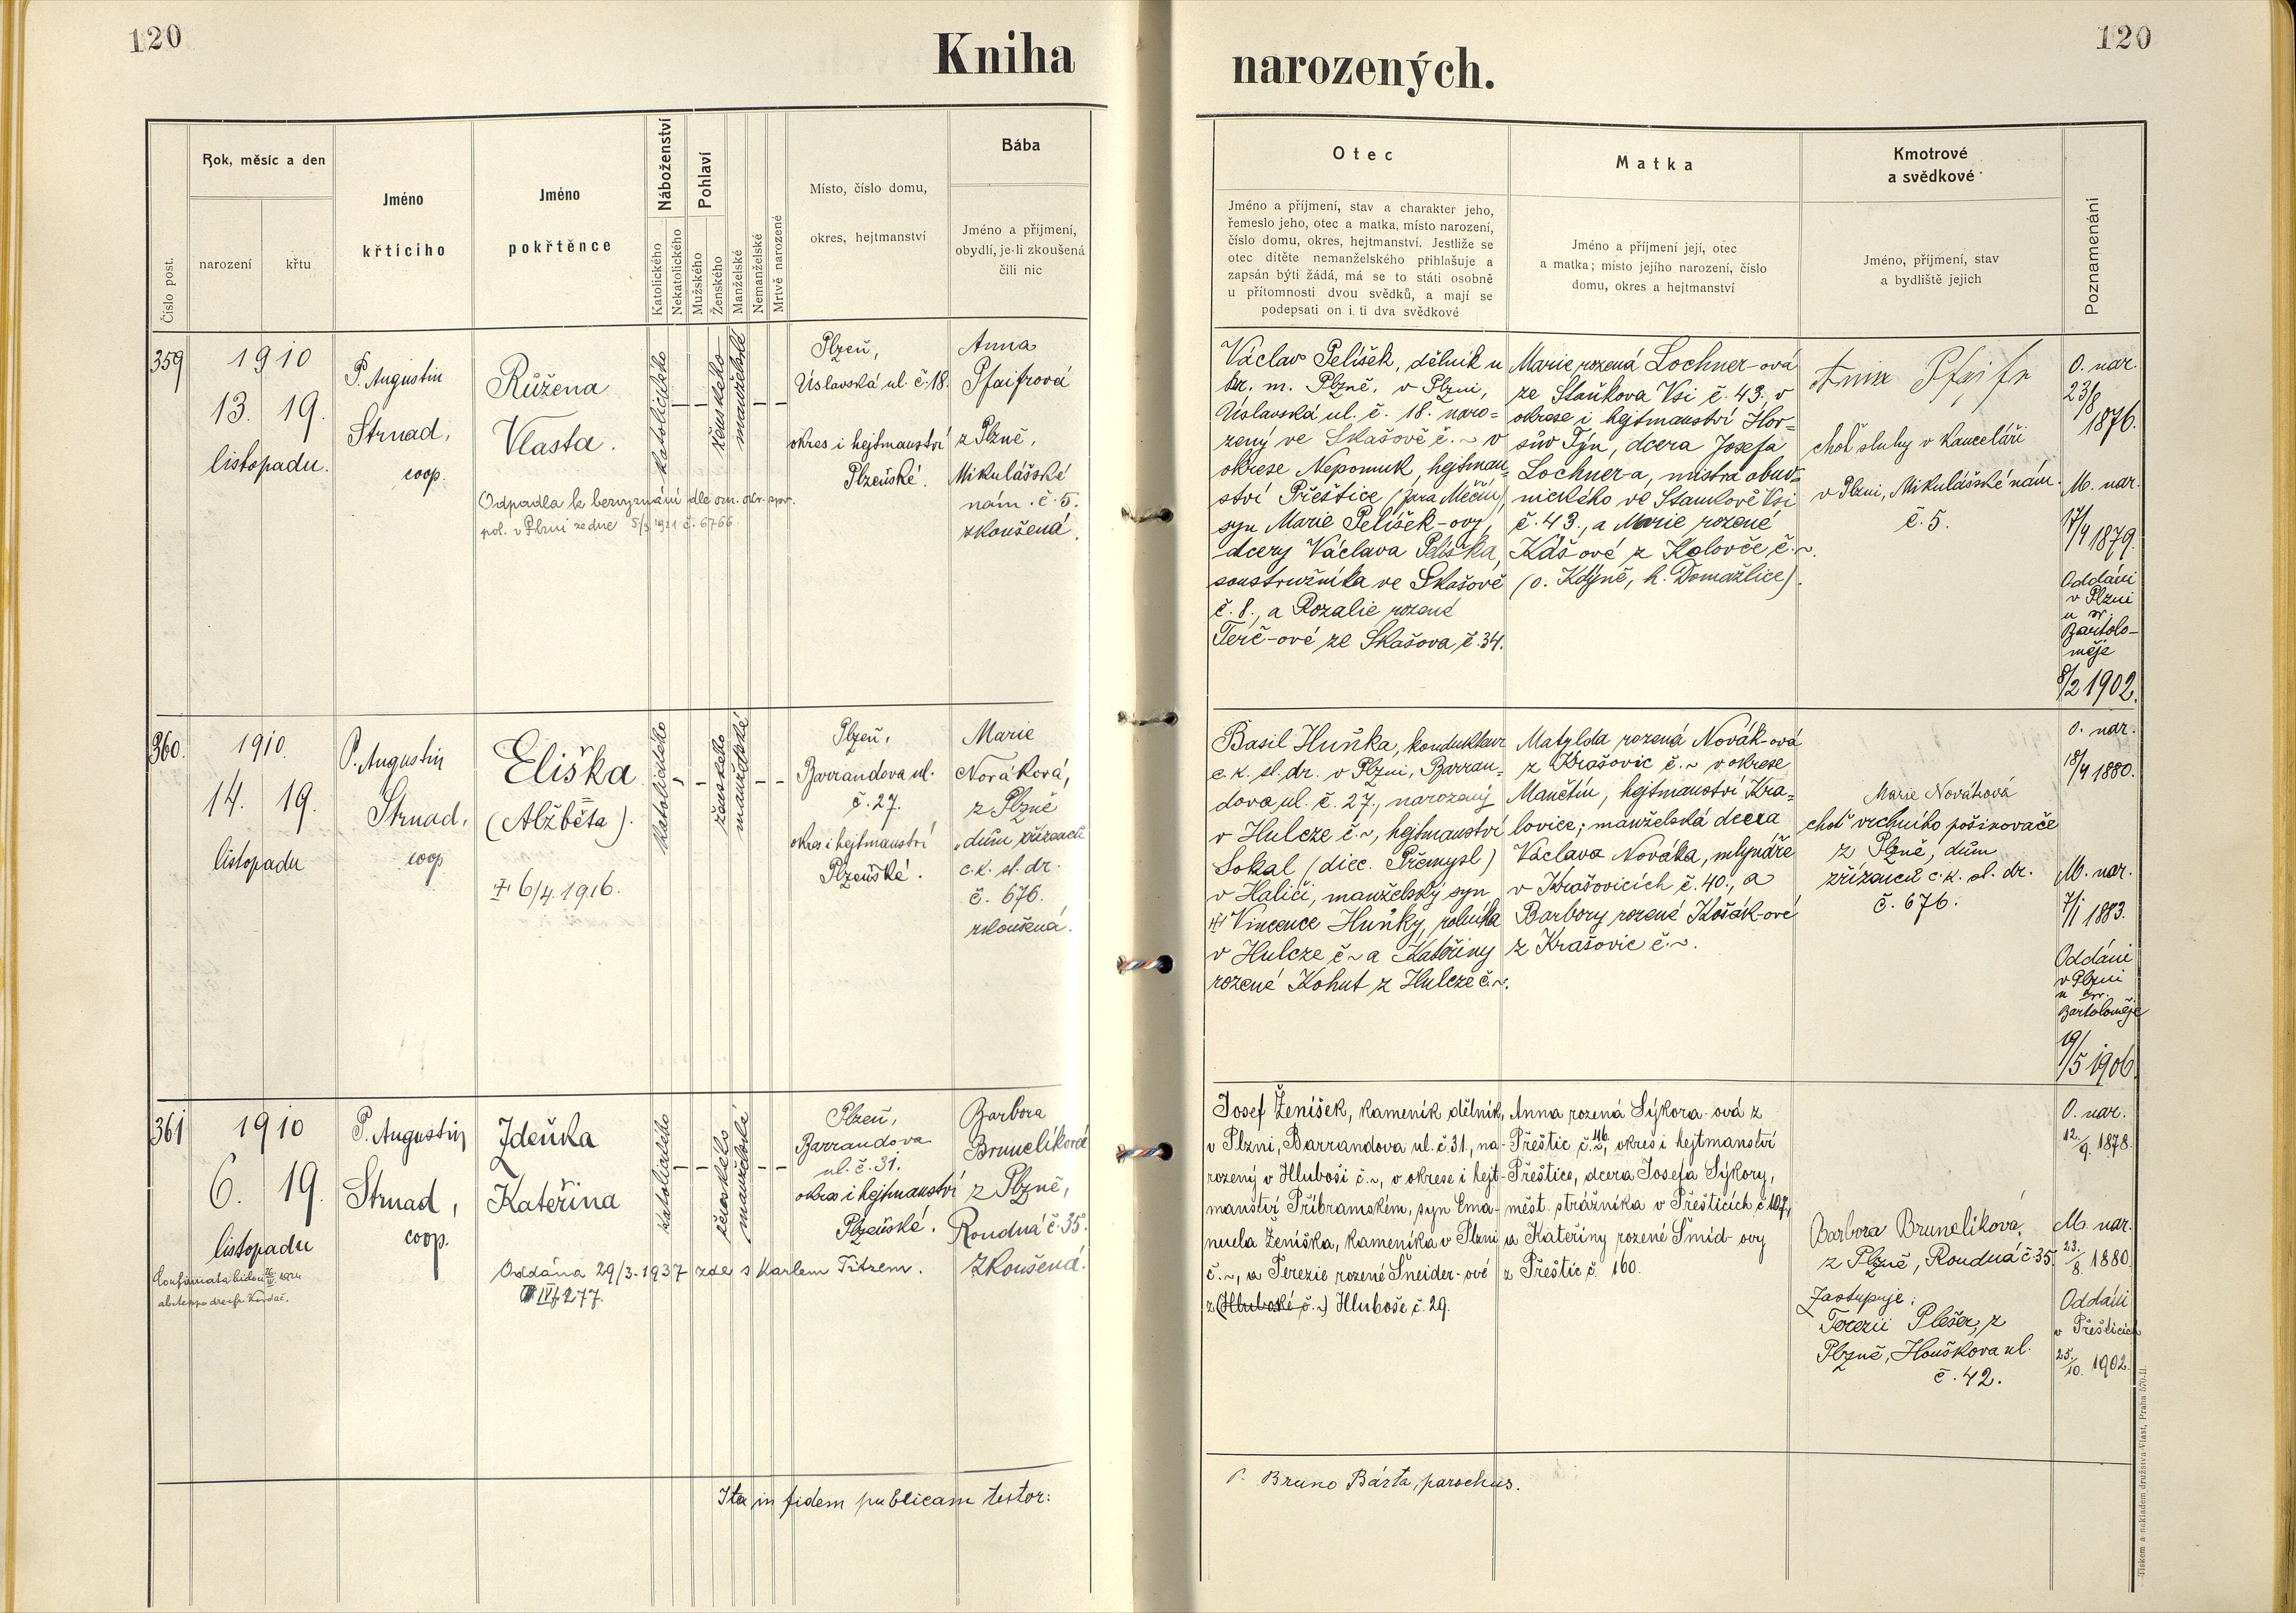 120
Kniha
Číslo post.
Rok, měsíc a den
narození
křtu
Jméno
křticího
Jméno
pokřtěnce
Náboženství
Katolického
Nekatolického
Pohlaví
Mužského
Ženského
Manželské
Nemanželské
Mrtvě narozené
Místo, číslo domu,
okres, hejtmanství
Bába
Jméno a příjmení,
obydlí, je-li zkoušená
čili nic
359
1910
13. 19.
listopadu.
P. Augustin
Strnad,
coop.
Růžena
Vlasta.
Odpadla k bezvyznání dle ozn. okr. spr.
pol. v Plzni ze dne 5/3 1921 č. 6766
katolického
ženského
manželské
Plzeň,
Úslavská ul. č. 18.
okres i hejtmanství
Plzeňské.
Anna
Pfaifrová
z Plzně,
Mikulášské
nám. č. 5.
zkoušená.
360.
1910.
14. 19.
listopadu
P. Augustin
Strnad,
coop
Eliška
(Alžběta).
6/4. 1916.
katolického
ženského
manželské
Plzeň,
Barrandova ul.
č. 27.
okres i hejtmanství
Plzeňské.
Marie
Nováková,
z Plzně
„dům zřízenců
c. k. st. dr.
č. 676.
zkoušená.
361
1910
6. 19.
listopadu
P. Augustin
Strnad,
coop.
Zdeňka
Kateřina
Oddána 29/3. 1937 zde s Karlem Titzem.
IV f 277.
katolického
ženského
manželská
Plzeň,
Barrandova
ul. č. 31.
okres i hejtmanství
Plzeňské.
Barbora
Brunclíková
z Plzně,
Roudná č. 35.
Zkoušená.
Ita in fidem publicam testor:
120
narozených.
Otec
Jméno a příjmení, stav a charakter jeho,
řemeslo jeho, otec a matka, místo narození,
číslo domu, okres, hejtmanství. Jestliže se
otec dítěte nemanželského přihlašuje a
zapsán býti žádá, má se to státi osobně
u přítomnosti dvou svědků, a mají se
podepsati on i. ti dva svědkové
Matka
Jméno a příjmení její, otec
a matka; místo jejího narození, číslo
domu, okres a hejtmanství
Kmotrové
a svědkové
Jméno, příjmení, stav
a bydliště jejich
Poznamenání
Václav Pelíšek, dělník u
kr. m. Plzně, v Plzni,
Úslavská ul. č. 18. naro=
zený ve Skašově č. ~ v
okrese Nepomuk, hejtman=
ství Přeštice (fara Měčín)
syn Marie Pelíšek-ovy,
dcery Václava Pelíška,
soustružníka ve Skašově
č. 8., a Rozalie rozené
Terč-ové ze Skašova, č. 34.
Marie rozená Lochner-ová
ze Staňkova Vsi č. 43. v
okrese i hejtmanství Hor=
šův Týn, dcera Josefa
Lochner-a, mistra obuv=
nického ve Stankově Vsi
č. 43., a Marie rozené
Káš-ové z Kolovče č. ~.
(o. Kdyně, h. Domažlice).
Anna Pfaifr
choť sluhy v kanceláři
v Plzni, Mikulášské nám.
č. 5.
O. nar.
23/8
1876.
M. nar.
17/4 1879.
Oddáni
v Plzni
u sv.
Bartolo-
měje
8/2 1902.
Basil Huňka, kondukteur
c. k. st. dr. v Plzni, Barran=
dova ul. č. 27., narozený
v Hulcze č. ~, hejtmanství
Sokal (diec. Přemysl)
v Haliči, manželský syn
Vincence Huňky, rolníka
v Hulcze č ~ a Kateřiny
rozené Kohut z Hulcze č. ~.
Matylda rozená Novák-ová
z Krašovic č. ~ v okrese
Manětín, hejtmanství Kra=
lovice; manželská dcera
Václava Nováka, mlynáře
v Krašovicích č. 40., a
Barbory rozené Košák-ové
z Krašovic č. ~.
Marie Nováková
choť vrchního pošinovače
z Plzně, dům
zřízenců c. k. st. dr.
č. 676.
O. nar.
18/4 1880.
M. nar.
7/1 1883.
Oddáni
v Plzni
u sv.
Bartoloměje
19/5 1906.
Josef Ženíšek, kameník dělník,
v Plzni, Barrandova ul. č 31., na-
rozený v Hluboši č. ~, v okrese i hejt-
manství Příbramském, syn Ema-
nuela Ženíška, kameníka v Plzni
č. ~, a Terezie rozené Šneider-ové
z (Hluboké č. ~) Hluboše, č. 29.
Anna rozená Sýkora-ová z
Přeštic č. 46., okres i hejtmanství
Přeštice, dcera Josefa Sýkory,
měst. strážníka v Přešticích č 107,
a Kateřiny rozené Šmíd-ovy
z Přeštic č. 160.
Barbora Brunclíková,
z Plzně, Roudná č. 35.
Zastupuje:
Terezii Plešer, z
Plzně, Houškova ul.
č. 42.
O. nar.
12./9. 1878.
M. nar.
23./8. 1880.
Oddáni
v Přešticích
25./10. 1902.
P. Bruno Bárta, parochus.
Tiskem a nákladem družstva Vlast, Praha 570-II.